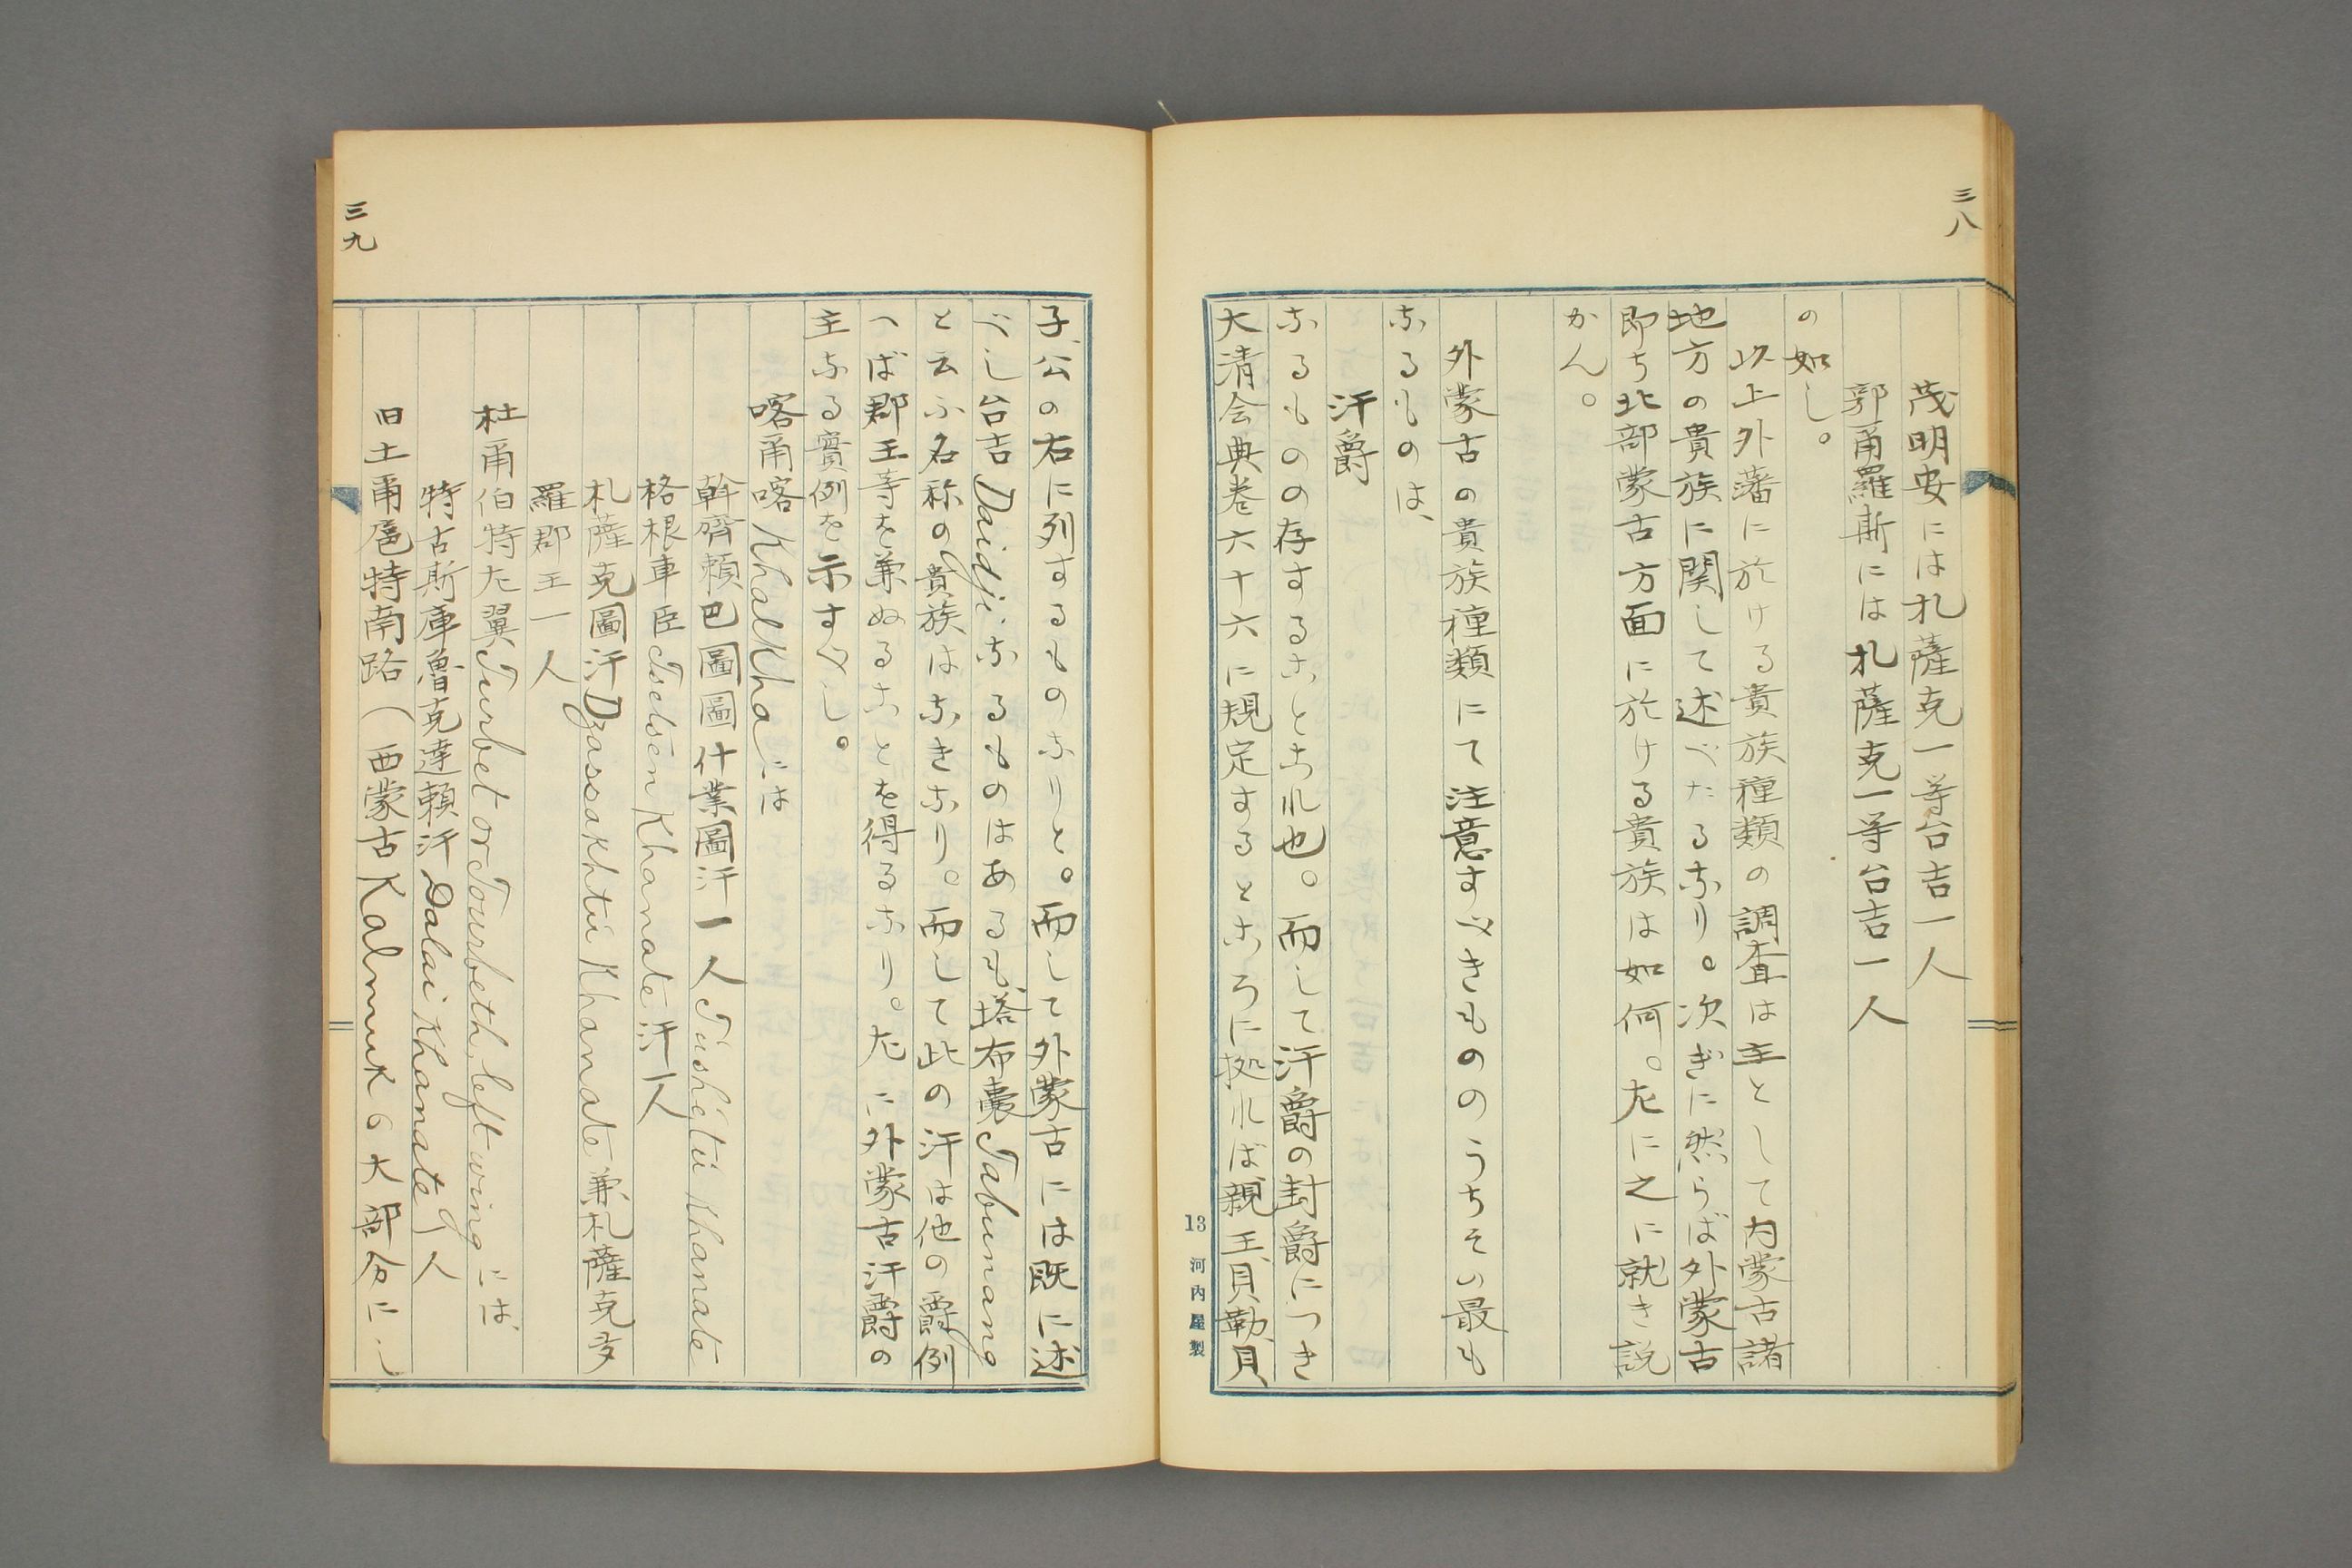 三八
茂明安には札薩克一等台吉一人
郭甭羅斯には札薩克一等台吉一人
の如し。
以上外藩に於ける貴族種類の調査は主として内蒙古諸
地方の貴族に関して述べたるなり。次ぎに然らば外蒙古
即ち北部蒙古方面に於ける貴族は如何。左に之に就き説
かん。
外蒙古の貴族種類にて注意すべきもののうちそい最も
なるものは、
汗爵
なるものの存することなれ也。而して汗爵の封爵につき
大清会典巻六十六に規定するところに拠れば親王、貝勒、貝
13 河内屋製
子、公の右に列するものなりと。而して外蒙古には既に述
べし台吉Daidji.なるものはあるも、塔布囊Tabunang
と云ふ名称の貴族はなきなり。而して此の汗は他の爵例
へば郡王等を兼ぬることを得るなり。左に外蒙古汗爵の
主なる實例を示すべし。
喀甭喀Khalkhaには
幹齊頼巴圖圖什業圖汗一人Tüshétü Khanate
格根車臣Tsetsen Khanate汗一人
札薩克圖汗Dzassakhtü Khanate兼札薩克多
羅郡王一人
杜甭伯特左翼Turbet or Tourbeth, left wingには、
特古斯庫魯克達頼汗Dalai Khanate一人
旧土甭扈特南路(西蒙古Kalmukの大部分にし
三九